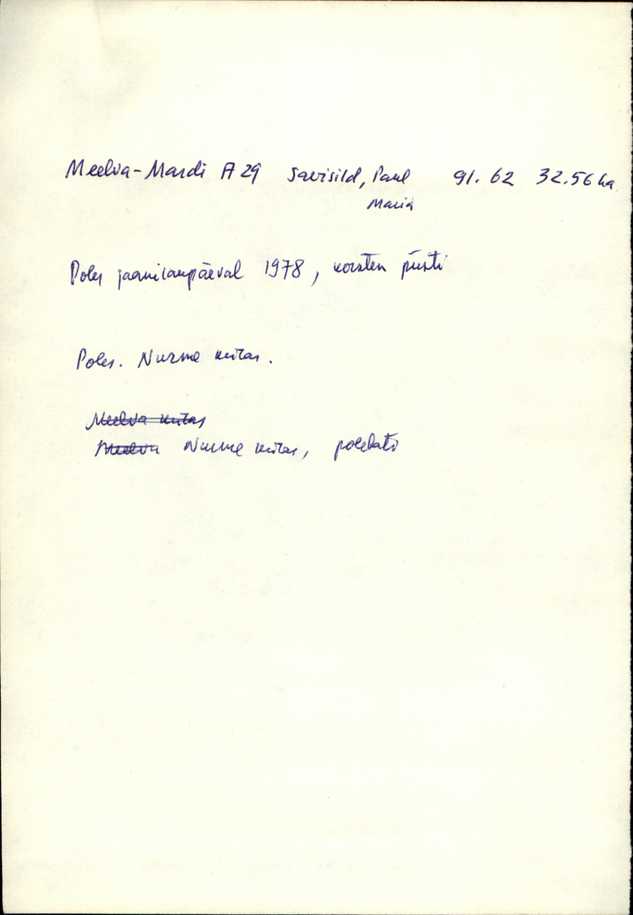 Meelva-Mardi A 29 Savisild, Paul 91. 62 32.56 ha
Maria
Poles jaanilaupäeval 1978, korsten püsti
Poles. Nurme külas.
Meelva külas
Meelva Nurme külas, põletati